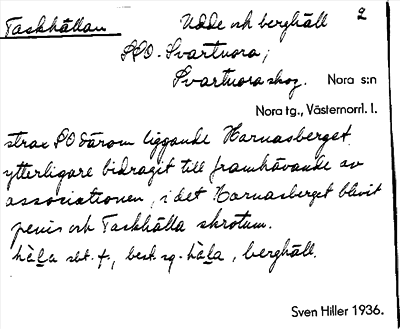 Taskhällan Udde och berghäll 2
SSO. Svartnora;
Svartnora skog. Nora s:n
Nora tg., Västernorrl. l.
strax SO därom liggande Harnasberget
ytterligare bidragit till framhävande av
associationen, i det Harnasberget blivit
penis och Taskhälla skrotum.
häla sbt. f., best. sg. häla, berghäll.
Sven Hiller 1936.